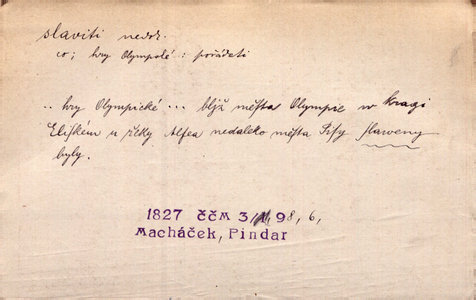 slaviti nedok.
co; hry Olympské : pořádati
.. hry Olympické ... bljž měſta Olympie w kragi
Eliſkém u řeky Alfea nedaleko měſta Piſy ſlaweny
byly.
1827 ČČM 3, 98, 6,
Macháček, Pindar